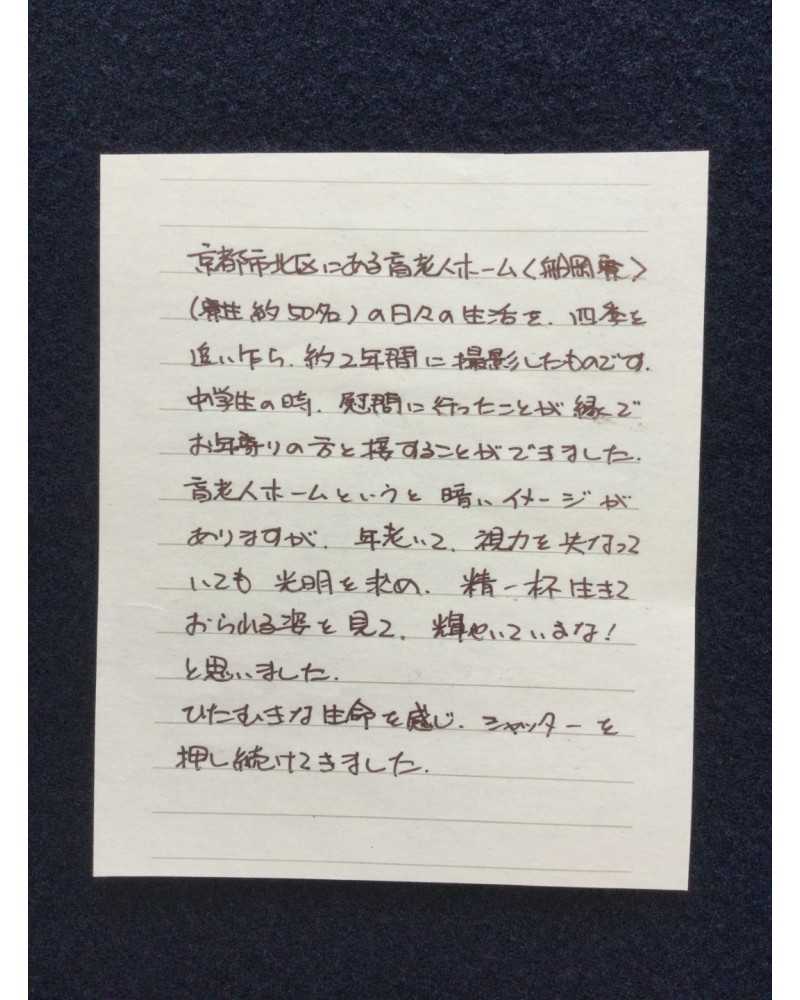 京都市北区にある盲老人ホーム〈船岡寮〉
(寮生約50名)の日々の生活を、四季を
追い乍ら、約2年間に撮影したものです.
中学生の時、慰問に行ったことが縁で
お年寄りの方と接することができました.
盲老人ホームというと暗いイメージが
ありますが、年老いて、視力を失なって
いても光明を求め、精一杯生きて
おられる姿を見て、輝やいていまな!
と思いました.
ひたむきな生命を感じ、シャッターを
押し続けてきました.